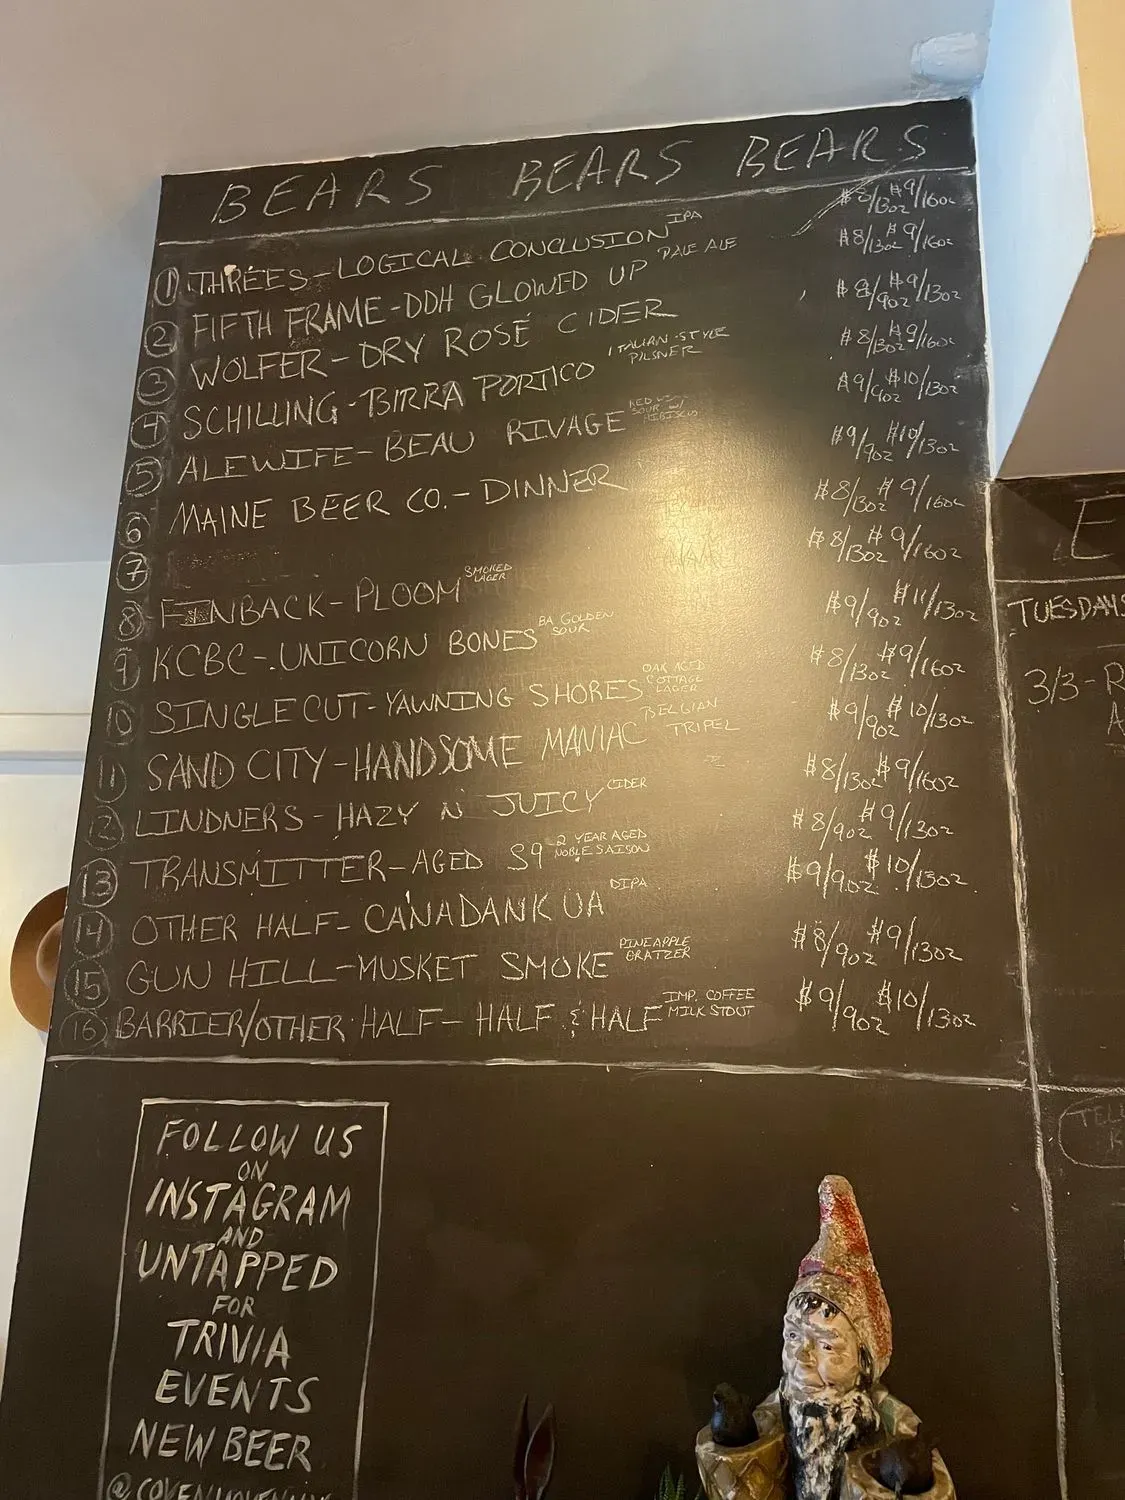 BEARS BEARS BEARS
1 THREES-LOGICAL CONCLUSION IPA $8/13oz $9/16oz
2 FIFTH FRAME-DDH GLOWED UP PALE ALE $8/13oz $9/16oz
3 WOLFER-DRY ROSÉ CIDER $8/9oz $9/13oz
4 SCHILLING-BIRRA PORTICO ITALIAN-STYLE PILSNER $8/13oz $9/16oz
5 ALEWIFE-BEAU RIVAGE SOUR W/ HIBISCUS $9/9oz $10/13oz
6 MAINE BEER CO.-DINNER $9/9oz $10/13oz
7 $8/13oz $9/16oz
8 FINBACK-PLOOM SMOKED LAGER $8/13oz $9/16oz
9 KCBC-UNICORN BONES BA GOLDEN SOUR $9/9oz $11/13oz
10 SINGLECUT-YAWNING SHORES OAK AGED COTTAGE LAGER $8/13oz $9/16oz
11 SAND CITY-HANDSOME MANIAC BELGIAN TRIPEL $9/9oz $10/13oz
2 LINDNERS-HAZY N' JUICY CIDER $8/13oz $9/16oz
13 TRANSMITTER-AGED S9 2 YEAR AGED NOBLE SAISON $8/9oz $9/13oz
14 OTHER HALF-CANADANKUA DIPA $9/9oz $10/13oz
15 GUN HILL-MUSKET SMOKE PINEAPPLE GRATZER $8/9oz $9/13oz
16 BARRIER/OTHER HALF-HALF & HALF IMP. COFFEE MILK STOUT $9/9oz $10/13oz
FOLLOW US
ON
INSTAGRAM
AND
UNTAPPED
FOR
TRIVIA
EVENTS
NEW BEER
E
TUESDAYS
3/3-R
A
TELL
K